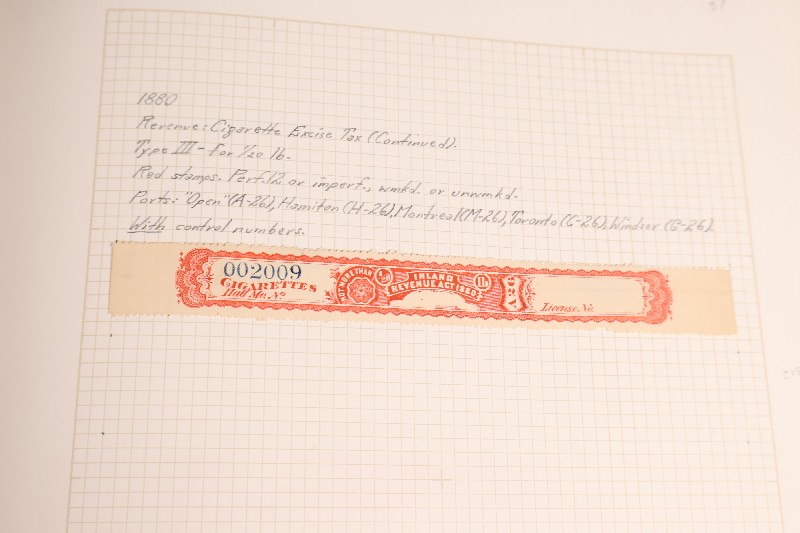 1880
Revenue: Cigarette Excise Tax (Continued).
Type III - for 1/20 lb.
Red stamps. Perf. 12 or imperf., wmkd. or unwmkd.
Ports: "Open" (A-26), Hamilton (H-26), Montreal (M-26), Toronto (C-26), Windsor (G-26)
With control numbers.
002009
CIGARETTES
NOT MORE THAN
INLAND
REVENUE ACT 1880
lb
A 26
License No.